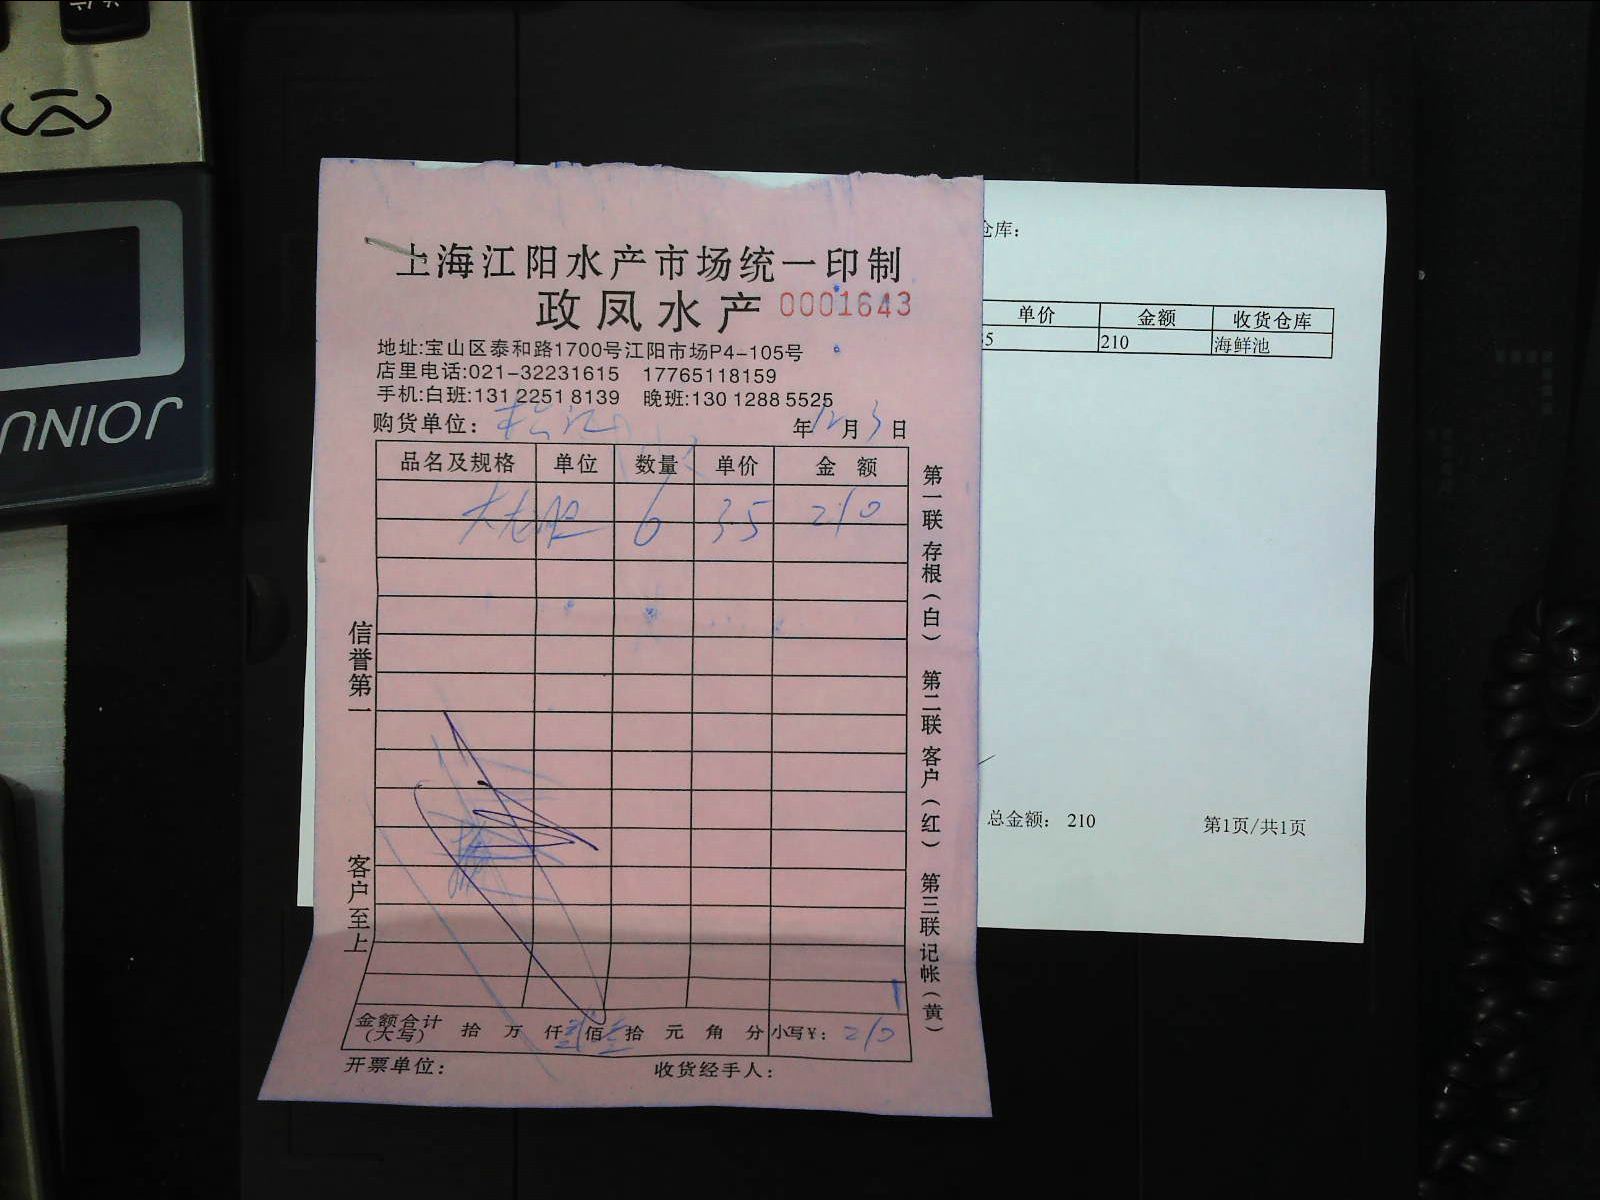 上海江阳水产市场统一印制
政凤水产 0001643
地址:宝山区泰和路1700号江阳市场P4-105号
店里电话:021-32231615 17765118159
手机:白班:131 2251 8139 晚班:130 1288 5525
购货单位: 年12月3日
品名及规格 单位 数量 单价 金 额
6 35 210
信誉第一
客户至上
第一联 存根(白) 第二联 客户(红) 第三联 记帐(黄)
金额合计(大写) 拾 万 仟 佰 拾 元 角 分 小写¥: 210
开票单位: 收货经手人:
仓库:
单价 金额 收货仓库
5 210 海鲜池
总金额: 210 第1页/共1页
JOINU